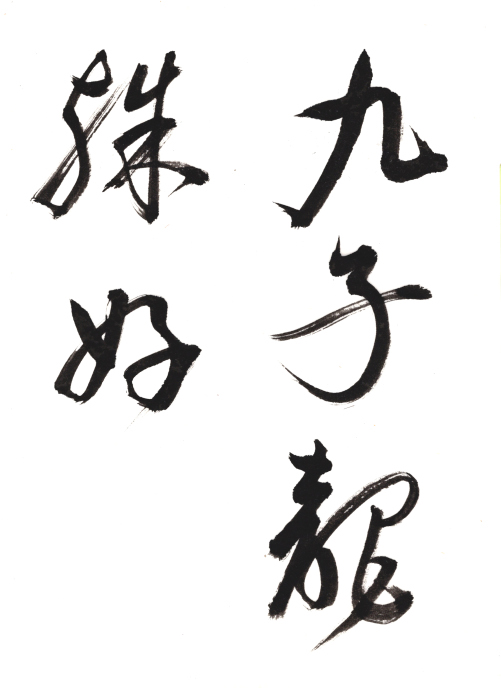 九子龍
殊好